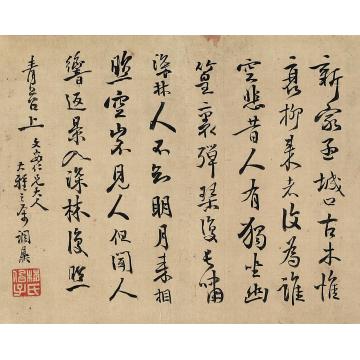 新家孟城口古木惟
衰柳來者復為誰
空悲昔人有獨坐幽
篁裏彈琴復長嘯
深林人不知明月來相
照空山不見人但聞人
響返景入深林復照
青苔上
大人